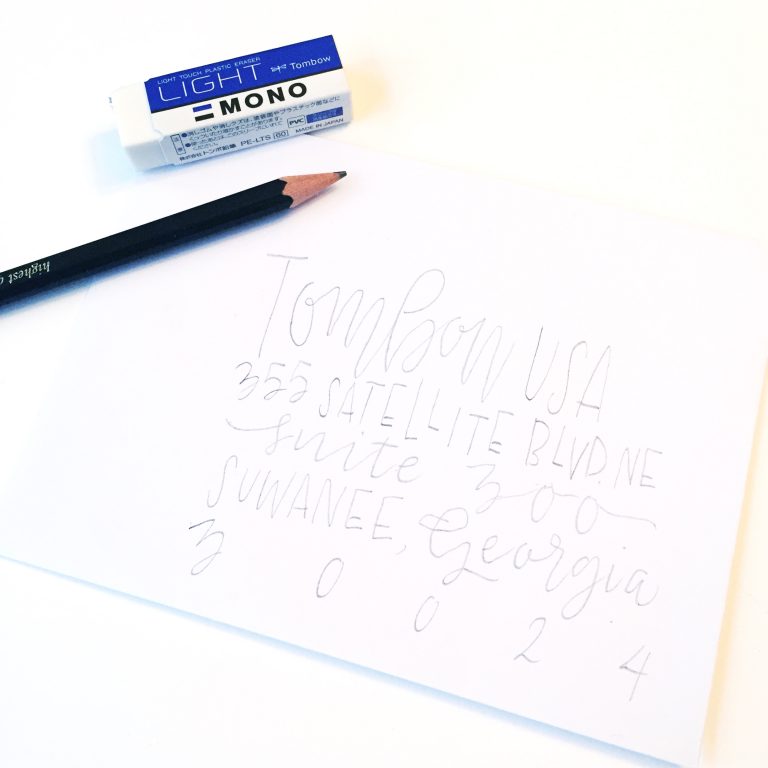 LIGHT TOUCH PLASTIC ERASER
LIGHT Tombow
MONO
株式会社トンボ鉛筆 PE-LTS [60]
PVC
MADE IN JAPAN
highest
Tombow USA
355 SATELLITE BLVD. NE
suite 300
SUWANEE, Georgia
30024